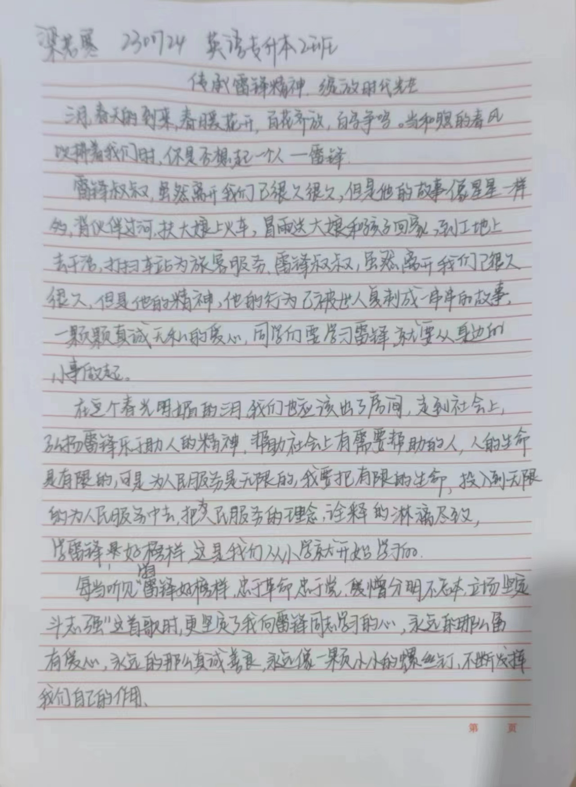 梁若愚 230724 英语专升本2班
传承雷锋精神 绽放时代光芒
三月,春天的到来,春暖花开,百花齐放,百鸟争鸣。当和煦的春风
吹拂着我们时,你是否想起一个人——雷锋
雷锋叔叔,虽然离开我们已很久很久,但是他的故事像星星一样
多,背伙伴过河,扶大嫂上火车,冒雨送大嫂和孩子回家,到工地上
去干活,打扫车站为旅客服务,雷锋叔叔,虽然离开我们已很久
很久,但是他的精神,他的行为已被世人复制成一串串的故事,
一颗颗真诚无私的爱心,同学们要学习雷锋,就要从身边的
小事做起。
在这个春光明媚的三月,我们也应该出了房间,走到社会上,
弘扬雷锋乐于助人的精神,帮助社会上有需要帮助的人,人的生命
是有限的,可是为人民服务是无限的,我要把有限的生命,投入到无限
的为人民服务中去,把人民服务的理念,诠释的淋漓尽致,
学雷锋好榜样 这是我们从小学就开始学习的。
每当听见"雷锋好榜样,忠于革命忠于党,爱憎分明不忘本 立场坚定
斗志强"这首歌时,更坚定了我向雷锋同志学习的心,永远的那么富
有爱心,永远的那么真诚善良,永远像一颗小小的螺丝钉,不断发挥
我们自己的作用。
第 頁